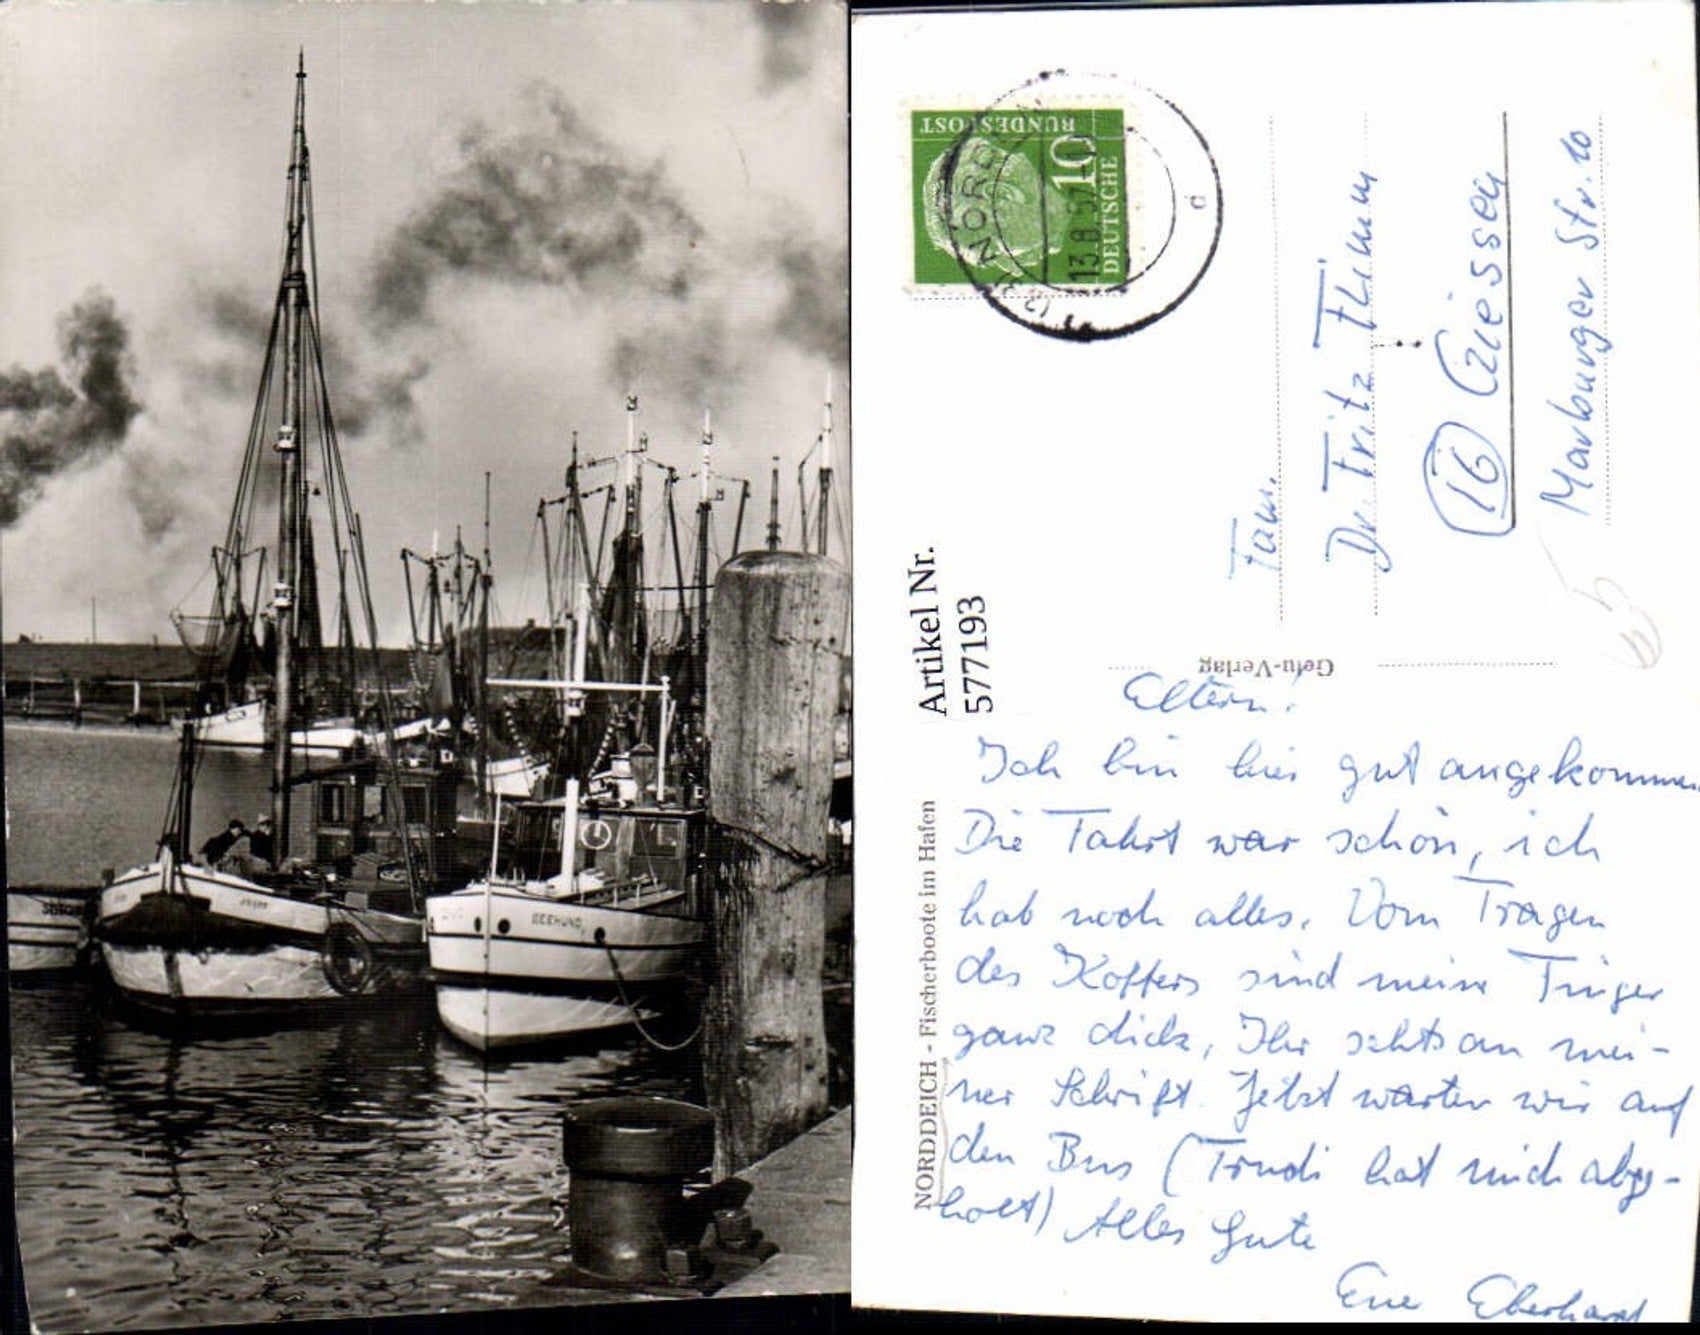 SEEHUND
DEUTSCHE
BUNDESPOST
10
NORDEN
13.8.57
d
Fam.
Dr. Fritz Thimm
(16) Giessen
Marburger Str. 10
Artikel Nr.
577193
Gefu-Verlag
NORDDEICH - Fischerboote im Hafen
Eltern!
Ich bin hier gut angekommen
Die Fahrt war schön, ich
hab noch alles. Vom Tragen
des Koffers sind meine Finger
ganz dick, Ihr sehts an mei-
ner Schrift. Jetzt warten wir auf
den Bus (Trudi hat mich abge-
holt) Alles Gute
Eue Eberhard